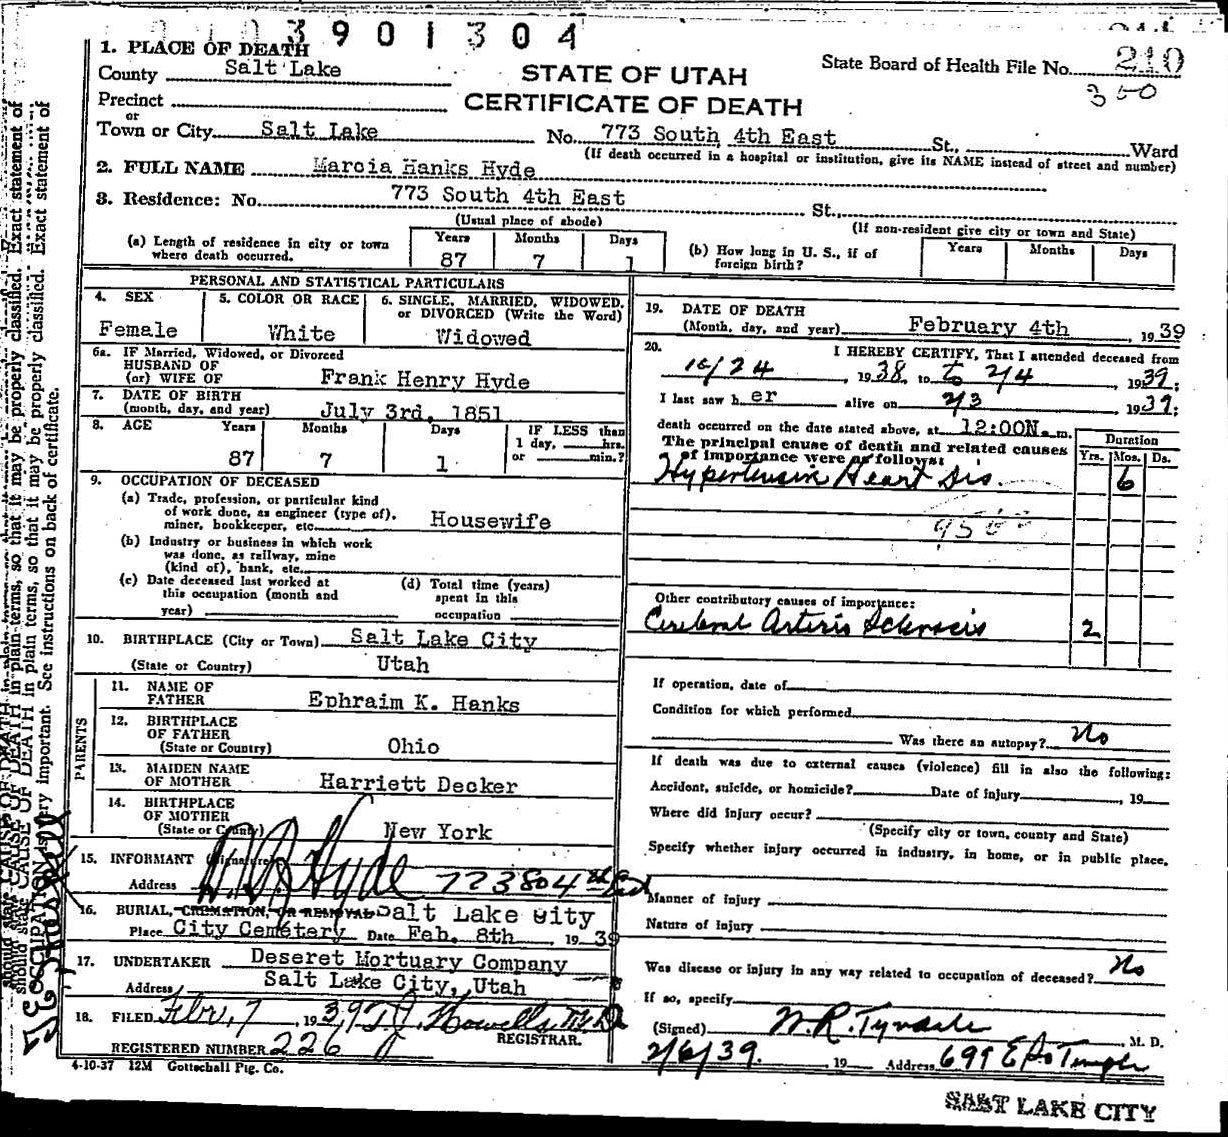 3 9 0 1 3 0 4
1. PLACE OF DEATH
County Salt Lake
STATE OF UTAH
State Board of Health File No. 210
350
Precinct
CERTIFICATE OF DEATH
or
Town or City Salt Lake No. 773 South 4th East St., Ward
(If death occurred in a hospital or institution, give its NAME instead of street and number)
2. FULL NAME Marcia Hanks Hyde
3. Residence: No. 773 South 4th East St.,
(Usual place of abode) (If non-resident give city or town and State)
(a) Length of residence in city or town where death occurred. Years 87 Months 7 Days 1
(b) How long in U. S., if of foreign birth? Years Months Days
PERSONAL AND STATISTICAL PARTICULARS
4. SEX Female
5. COLOR OR RACE White
6. SINGLE, MARRIED, WIDOWED, or DIVORCED (Write the Word) Widowed
6a. IF Married, Widowed, or Divorced
HUSBAND OF
(or) WIFE OF Frank Henry Hyde
7. DATE OF BIRTH
(month, day, and year) July 3rd, 1851
8. AGE Years 87 Months 7 Days 1
IF LESS than
1 day, hrs.
or min.?
9. OCCUPATION OF DECEASED
(a) Trade, profession, or particular kind
of work done, as engineer (type of),
miner, bookkeeper, etc. Housewife
(b) Industry or business in which work
was done, as railway, mine
(kind of), bank, etc.
(c) Date deceased last worked at
this occupation (month and
year)
(d) Total time (years)
spent in this
occupation
10. BIRTHPLACE (City or Town) Salt Lake City
(State or Country) Utah
PARENTS
11. NAME OF
FATHER Ephraim K. Hanks
12. BIRTHPLACE
OF FATHER
(State or Country) Ohio
13. MAIDEN NAME
OF MOTHER Harriett Decker
14. BIRTHPLACE
OF MOTHER
(State or Country) New York
15. INFORMANT (Signature) Hyde
Address
16. BURIAL, CREMATION, OR REMOVAL Salt Lake City
Place City Cemetary Date Feb. 8th, 1939
17. UNDERTAKER Deseret Mortuary Company
Address Salt Lake City, Utah
18. FILED Febr, 7 1939 T.J. Howells M.D.
REGISTRAR.
REGISTERED NUMBER 226
4-10-37 12M Gottschall Ptg. Co.
19. DATE OF DEATH
(Month, day, and year) February 4th, 1939
20. I HEREBY CERTIFY, That I attended deceased from
10/24, 1938, to to 2/4, 1939;
I last saw her alive on 2/3 1939;
death occurred on the date stated above, at 12:00N. m.
The principal cause of death and related causes
of importance were as follows:
Duration
Yrs. Mos. Ds.
Hypertensive Heart Dis. 6
Other contributory causes of importance:
Cerebral Arterio Sclerosis 2
If operation, date of
Condition for which performed
Was there an autopsy? No
If death was due to external causes (violence) fill in also the following:
Accident, suicide, or homicide? Date of injury, 19
Where did injury occur?
(Specify city or town, county and State)
Specify whether injury occurred in industry, in home, or in public place.
Manner of injury
Nature of injury
Was disease or injury in any way related to occupation of deceased? No
If so, specify
(Signed) W.R. Tyndale, M. D.
2/6/39. 19 Address 699 E So Temple
SALT LAKE CITY
should state CAUSE OF DEATH in plain terms, so that it may be properly classified. Exact statement of
OCCUPATION is very important. See instructions on back of certificate.